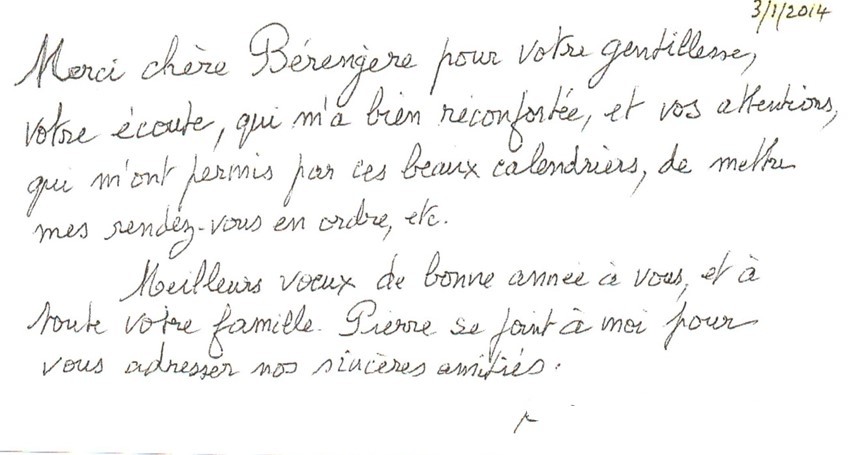 3/1/2014
Merci chère Bérengère pour votre gentillesse,
votre écoute, qui m'a bien réconfortée, et vos attentions,
qui m'ont permis par ces beaux calendriers, de mettre
mes rendez-vous en ordre, etc.
Meilleurs voeux de bonne année à vous, et à
toute votre famille. Pierre se joint à moi pour
vous adresser nos sincères amitiés.